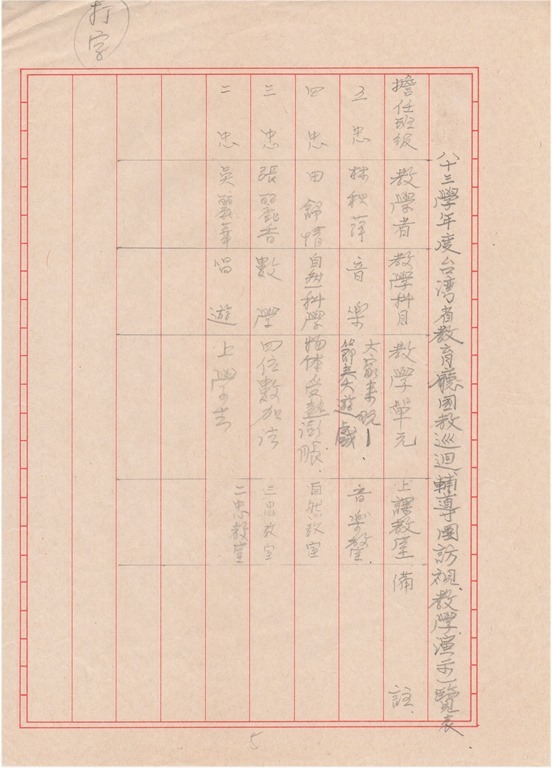 打字
八十三學年度台湾省教育廳國教巡迴輔導團訪視教學演示一覽表
擔任班級 教學者 教學科目 教學單元 上課教室 備註
五忠 林秋萍 音楽 大家來玩 節奏大遊戲 音楽室
四忠 田錦情 自然科學 物体受熱澎脹 自然教室
三忠 張麗香 數學 四位數加法 三忠教室
二忠 吳麗華 唱遊 上學去 二忠教室
5